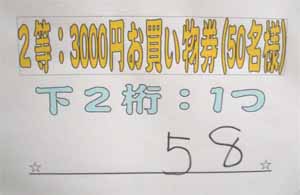 2等：3000円お買い物券(50名様)
下2桁：1つ
58
☆ ☆